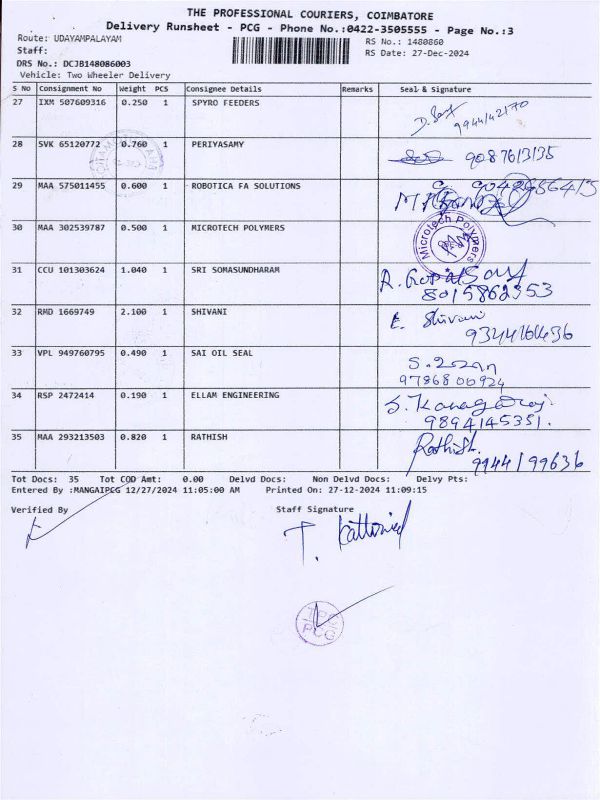 THE PROFESSIONAL COURIERS, COIMBATORE
Delivery Runsheet - PCG - Phone No.:0422-3505555 - Page No.:3
Route: UDAYAMPALAYAM
RS No.: 1480860
Staff:
RS Date: 27-Dec-2024
DRS No.: DCJB148086003
Vehicle: Two Wheeler Delivery
S No Consignment No Weight PCS Consignee Details Remarks Seal & Signature
27 IXM 507609316 0.250 1 SPYRO FEEDERS
9944142170
28 SVK 65120772 0.760 1 PERIYASAMY
9087613135
29 MAA 575011455 0.600 1 ROBOTICA FA SOLUTIONS
30 MAA 302539787 0.500 1 MICROTECH POLYMERS
Microtech Polymers
31 CCU 101303624 1.040 1 SRI SOMASUNDHARAM
R. Gopal Samy
8015862353
32 RMD 1669749 2.100 1 SHIVANI
E. Shivani
33 VPL 949760795 0.490 1 SAI OIL SEAL
9786800924
34 RSP 2472414 0.190 1 ELLAM ENGINEERING
S. Kanagaraj
9894145351.
35 MAA 293213503 0.820 1 RATHISH
Rathish.
9944199636
Tot Docs: 35 Tot COD Amt: 0.00 Delvd Docs: Non Delvd Docs: Delvy Pts:
Entered By :MANGAIPCG 12/27/2024 11:05:00 AM Printed On: 27-12-2024 11:09:15
Verified By Staff Signature
TPC
PCG